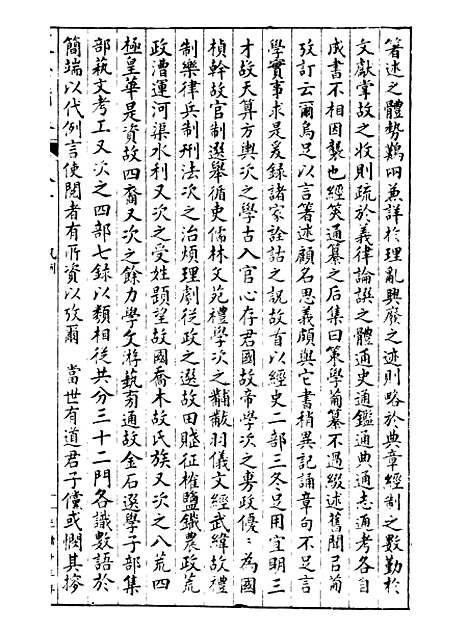 著述之體勢難兩兼詳於理亂興廢之迹則略於典章經制之數勤於
文獻掌故之收則疏於義律論譔之體通史通鑑通典通志通考各自
成書不相因襲也經筴通纂之后集曰策學葡纂不過綴述舊聞㠯葡
攷訂云爾烏足以言箸述顧名思義頗與它書稍異記誦章句不足言
學實事求是爰錄諸家詮詁之說故首以經史二部三冬足用宜明三
才故天算方輿次之學古入官心存君國故帝學次之專政優優為國
楨幹故官制選舉循吏儒林文苑禮學次之黼黻羽儀文經武緯故禮
制樂律兵制刑法次之治煩理劇從政之選故田賤征榷鹽鐵農政荒
政漕運河渠水利又次之受姓題望故國喬木故氏族又次之八荒四
極皇華是資故四裔又次之餘力學文游藝亦通故金石選學子部集
部藝文考工又次之四部七錄以類相從共分三十二門各識數語於
簡端以代例言使閱者有所資以攷爾 當世有道君子儻或憫其撏